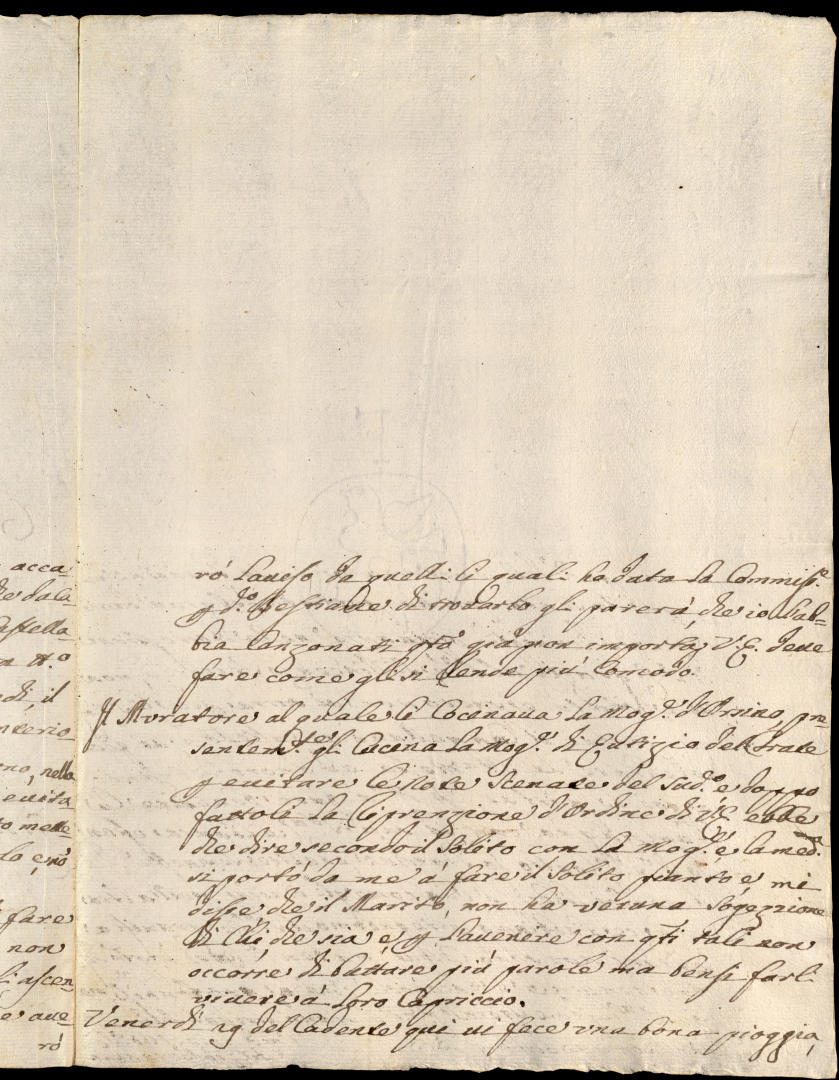 acca-
che dala-
Castella-
n N.o
rdi, il
nterio-
eno, nella
evita
to mette
do, e, nò
fare
non
li ascen
e ave-
rò
rò Laviso da quelli li quali ho data La Commiss.e
p d.o Bestiale di trovarlo gli parerà, che io Lab-
bia Canzonati q.to già non importa, V.E. deve
fare come gli si rende più Comodo.
Il Muratore al quale li Cocinava La Mog.e d'Ornino, pre
sentem.te gli Cucina La Mog.e di Eutizio del Frate
p evitare le note Scenate del Sud.o e doppo
fattoli La riprenzione d'Ordine di V.E. ebbe
che dire secondo il Solito con La Mog.e, e la med.a
si portò da me à fare il Solito pianto, e mi
disse che il Marito, non ha veruna Sogezzione
di Chi che sia e p Lavenire con q.ti tali non
occorre di buttare più parole ma bensi farli
vivere à Loro Capriccio.
Venerdi 29 del Cadente qui vi fece una bona pioggia,